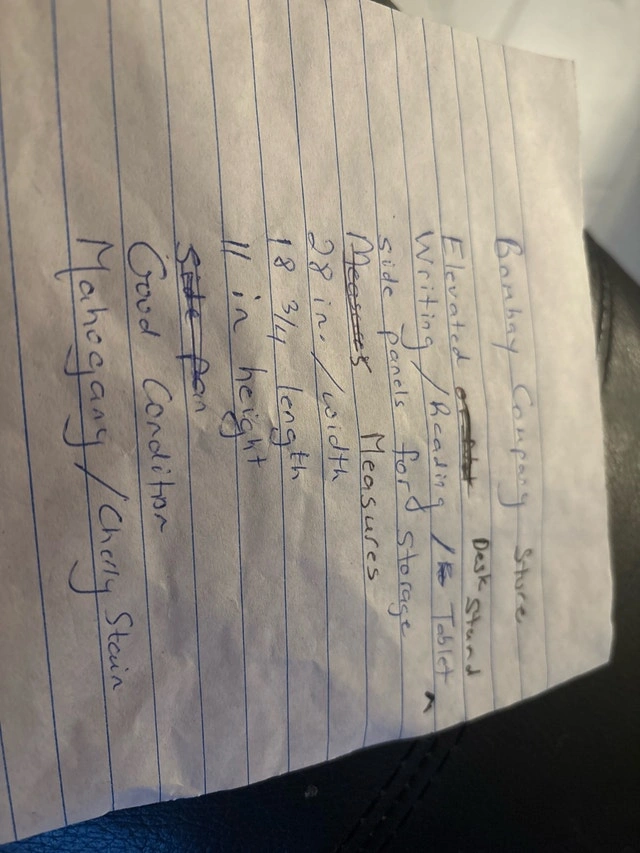 Bombay Company Store
Elevated Desk Stand
Writing / Reading / Tablet ^
side panels for storage
Measures Measures
28 in. / width
18 3/4 length
11 in height
side pan
Good Condition
Mahogany / Cherry Stain